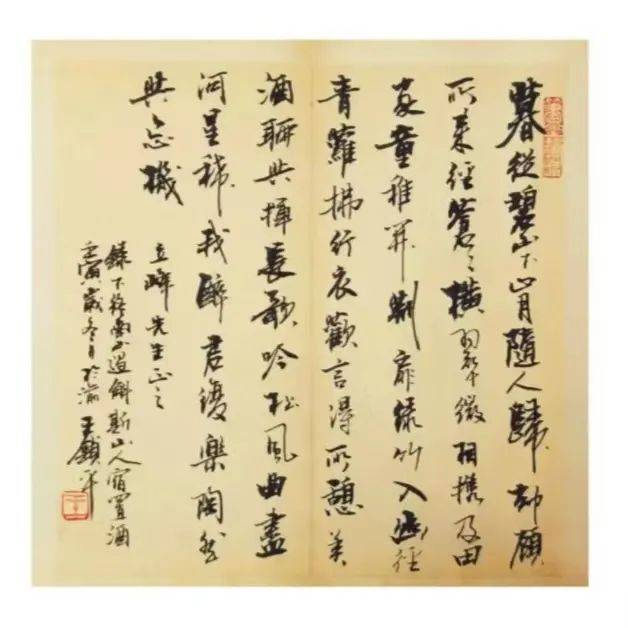 暮從碧山下山月隨人歸却顧
所來徑蒼〻橫翠微相攜及田
家童稚開荆扉綠竹入幽徑
青蘿拂行衣歡言得所憩美
酒聊共揮長歌吟松風曲盡
河星稀我醉君復樂陶然
共忘機
立 先生正之
錄下終南山過斛斯山人宿置酒
壬寅歲冬月於渝 王